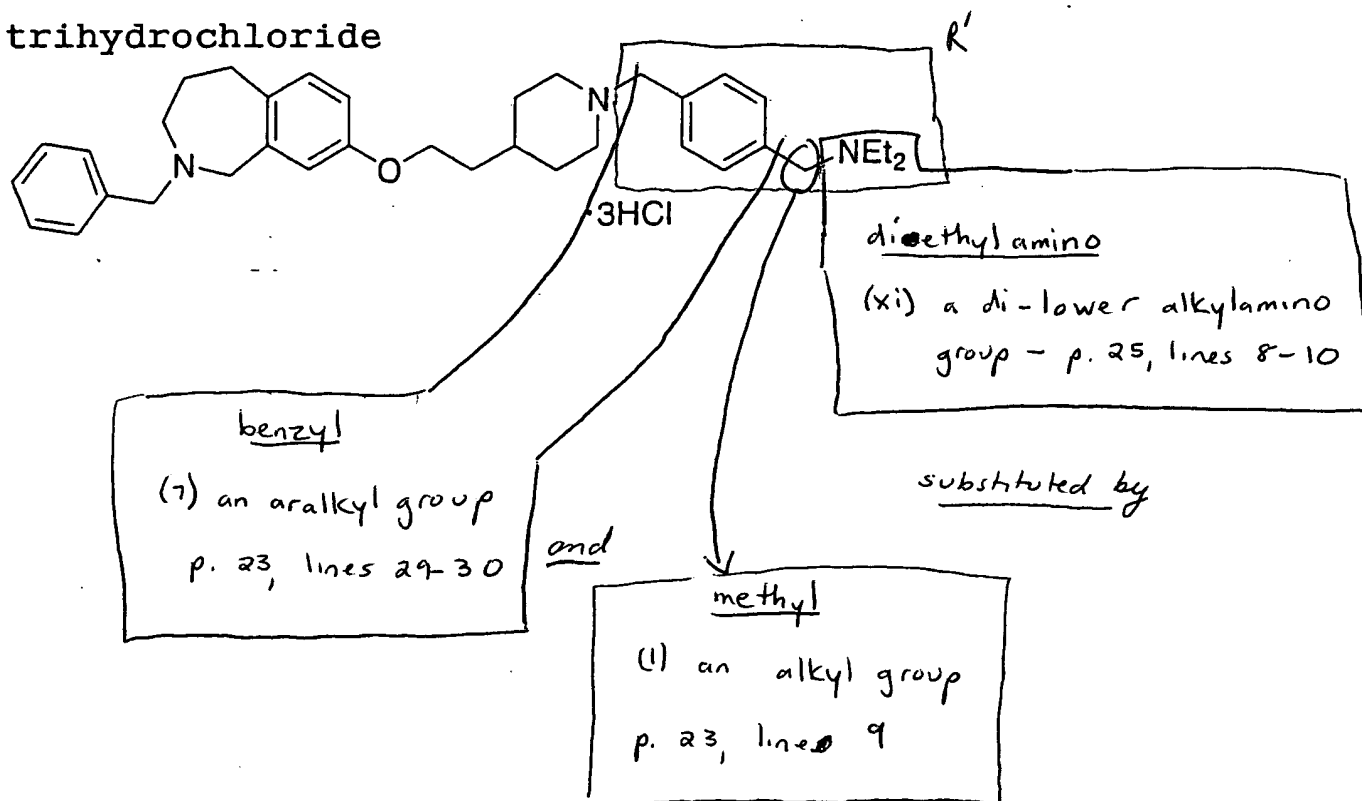 trihydrochloride
R'
N
N
O
NEt2
·3HCl
diethylamino
(xi) a di-lower alkylamino
group - p. 25, lines 8-10
benzyl
(7) an aralkyl group
p. 23, lines 29-30
and
substituted by
methyl
(1) an alkyl group
p. 23, line 9